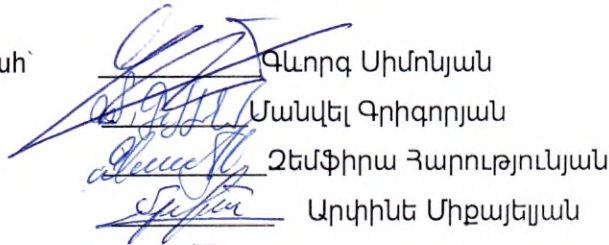 ահ՝ Գևորգ Սիմոնյան
Մանվել Գրիգորյան
Զեմֆիրա Հարությունյան
Արփինե Միքայելյան